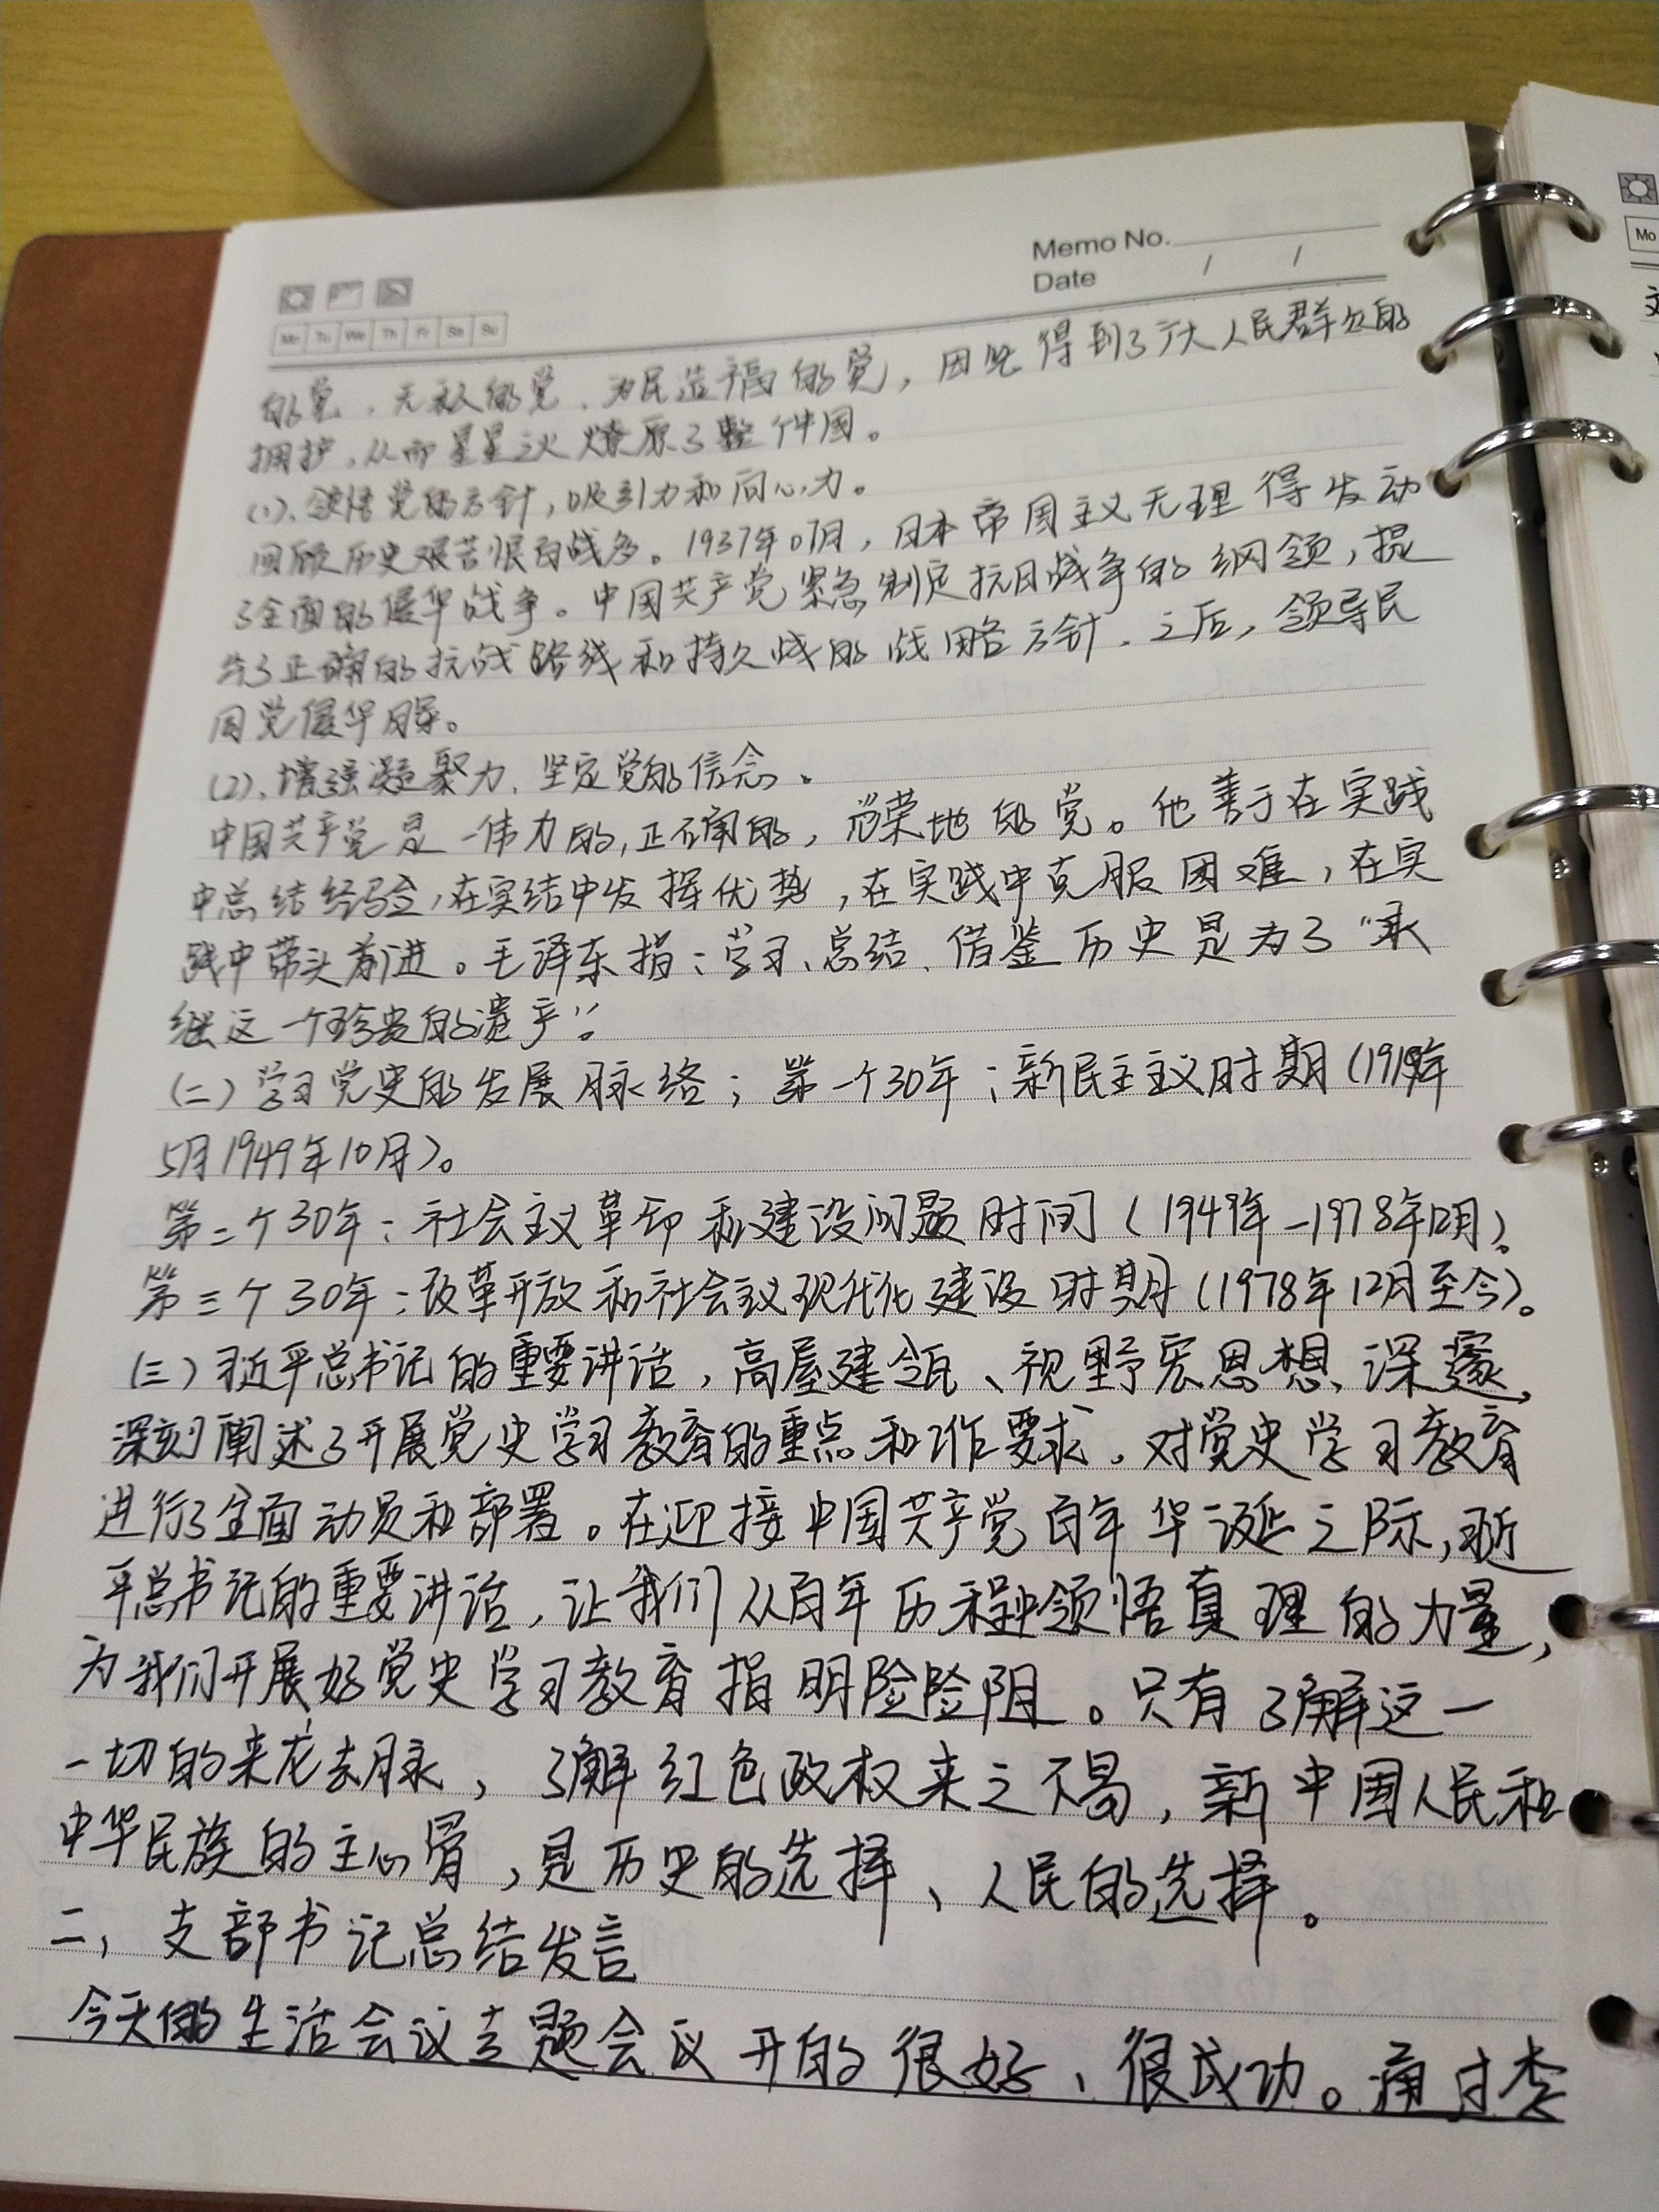 Memo No.
Date / /
Mo Tu We Th Fr Sa Su
Mo
的党、无私的党、为民造福的党，因此得到了广大人民群众的
拥护，从而星星之火燎原了整个中国。
(1)、领悟党的方针，吸引力和向心力。
回顾历史艰苦恨的战多。1937年07月，日本帝国主义无理得发动
了全面的侵华战争。中国共产党紧急制定抗日战争的纲领，提
出了正确的抗战路线和持久战的战略方针。之后，领导民
国党侵华
(2)、增强凝聚力、坚定党的信念。
中国共产党是一伟力的，正确的，光荣地的党。他善于在实践
中总结经验，在实结中发挥优势，在实践中克服困难，在实
践中带头前进。毛泽东指：学习、总结、借鉴历史是为了“承
继这一个珍贵的遗产”。
（二）学习党史的发展脉络；第一个30年：新民主主义时期（1919年
5月1949年10月）。
第二个30年：社会主义革命和建设问题时间（1949年-1978年12月）。
第三个30年：改革开放和社会主义现代化建设时期（1978年12月至今）。
（三）习近平总书记的重要讲话，高屋建瓴、视野宏思想、深邃，
深刻阐述了开展党史学习教育的重点和工作要求，对党史学习教育
进行了全面动员和部署。在迎接中国共产党百年华诞之际，习近
平总书记的重要讲话，让我们从百年历程中领悟真理的力量，
为我们开展好党史学习教育指明险险阻。只有了解这一
一切的来龙去脉，了解红色政权来之不易，新中国人民和
中华民族的主心骨，是历史的选择、人民的选择。
二、支部书记总结发言
今天的生活会议专题会议开的很好、很成功。通过李